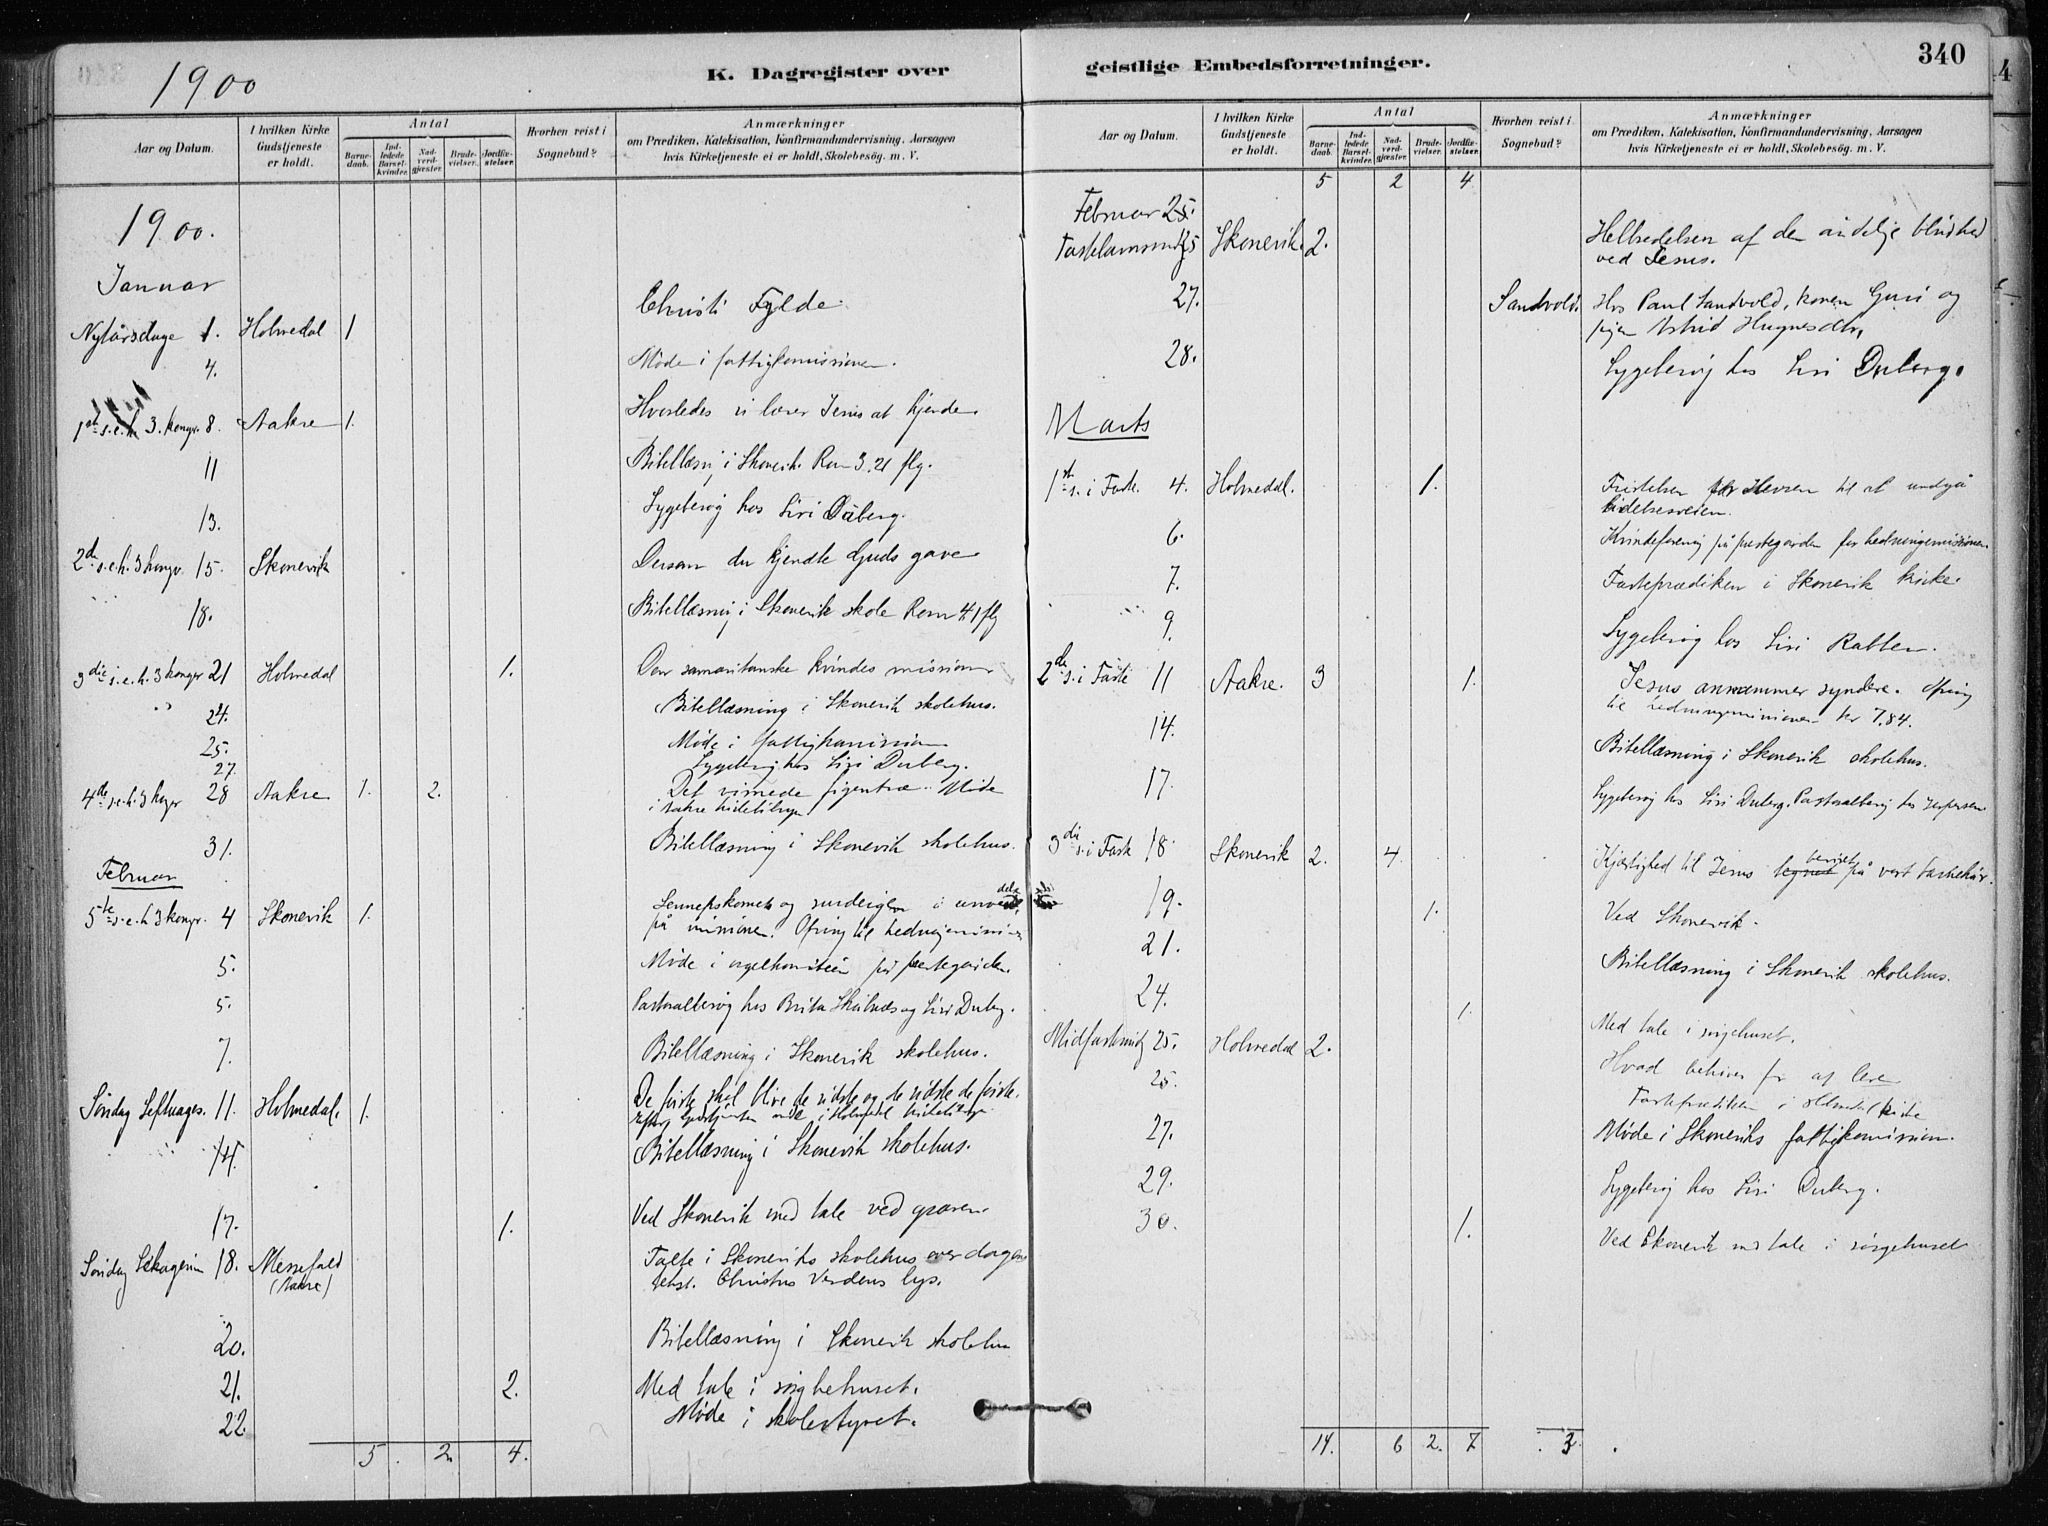 1900
K. Dagregister over
Aar og Datum.
I hvilken Kirke Gudstjeneste er holdt.
Antal
Barnedaab.
Indledede Barselkvinder.
Nadverdgjæster.
Brudevielser.
Jordfæstelser.
Hvorhen reist i Sognebud?
Anmærkninger
om Prædiken, Katekisation, Konfirmandundervisning, Aarsagen
hvis Kirketjeneste ei er holdt, Skolebesøg. m. V.
1900.
Januar
Christi Fylde.
Nytårsdage 1. Holmedal 1
4. Møde i fattigkomissionen.
1ste s.e.h. 3. kongr. 8. Aakre 1. Hvorledes vi lærer Jesus at kjende
11 Bibellæsn. i Skonevik. Rom 3.21 flg.
13. Sygebesøg hos Siri Duberg.
2de s.e.h. 3 kongr. 15. Skonevik Dersom du kjendte Guds gave
18. Bibellæsning i Skonevik skole Rom 4.1 flg
3die s.e.h. 3 konger 21 Holmedal 1. Den samaritanske kvindes mission
24. Bibellæsning i Skonevik skolehus.
25. Møde i fattigkomission
27. Sygebesøg hos Siri Duberg.
4de s.e.h. 3 konger 28 Aakre 1. 2. Det visnede figentræ. Møde
i Aakre kirketilsyn
31. Bibellæsning i Skonevik skolehus.
Februar
5te s.e.h. 3 kongr. 4 Skonevik 1. Sennepskornet og surdeigen i anvendelse
på missionen. Ofring til hedningemission
5. Møde i orgelkomiteen på præstegården.
5. Pastoralbesøg hos Brita Skålnes og Siri Duberg.
7. Bibellæsning i Skonevik skolehus.
Søndag Septuages. 11. Holmedal. 1. De første skal blive de sidste og de sidste de første.
Efter gudstjenesten møde i Holmedal kirketilsyn
14. Bibellæsning i Skonevik skolehus.
17. 1. Ved Skonevik med tale ved graven
Søndag Seksagesim 18. Messefald
(Aakre)
Talte i Skoneviks skolehus over dagens
tekst. Christus Verdens lys.
20. Bibellæsning i Skonevik skolehus
21. 2. Med tale i sørgehuset.
22. Møde i skolestyret.
5 . 2. 4.
geistlige Embedsforretninger.
340
Aar og Datum.
I hvilken Kirke Gudstjeneste er holdt.
Antal
Barnedaab.
Indledede Barselkvinder.
Nadverdgjæster.
Brudevielser.
Jordfæstelser.
Hvorhen reist i Sognebud?
Anmærkninger
om Prædiken, Katekisation, Konfirmandundervisning, Aarsagen
hvis Kirketjeneste ei er holdt, Skolebesøg. m. V.
5 2 4
Februar 25.
Fastelavnssond. 25 Skonevik. 2. Helbredelsen af den åndelige blindhed
ved Jesus.
27. Sandvold. Hos Paul Sandvold, konen Guri og
pigen Astrid Hugnesdtr.
28. Sygebesøg hos Siri Duberg.
Marts
1ste s. i Faste. 4. Holmedal. 1. Fristelsen for Herren til at undgå
lidelsesveien.
6. Kvindeforening på præstegården for hedningemissionen.
7. Fasteprædiken i Skonevik kirke.
9. Sygebesøg hos Siri Rabben.
2de s. i Faste 11 Aakre. 3 1. Jesus annammer syndere. Ofring
til hedningemissionen kr 7,84.
14. Bibellæsning i Skonevik skolehus.
17. Sygebesøg hos Siri Duberg. Pastoralbesøg hos Jespersen
3die s. i Faste 18. Skonevik 2. 4. Kjærlighed til Jesus beviset på vort barnekår.
19. 1. Ved Skonevik.
21. Bibellæsning i Skonevik skolehus.
24. 1. Med tale i sørgehuset.
Midfastesøndag 25. Holmedal 2. Hvad behøves for at leve
25. Fasteprædiken i Holmedal kirke
27. Møde i Skoneviks fattigkomission.
29. Sygebesøg hos Siri Duberg.
30. 1. Ved Skonevik med tale i sørgehuset
14. 6 2. 7 . 3.